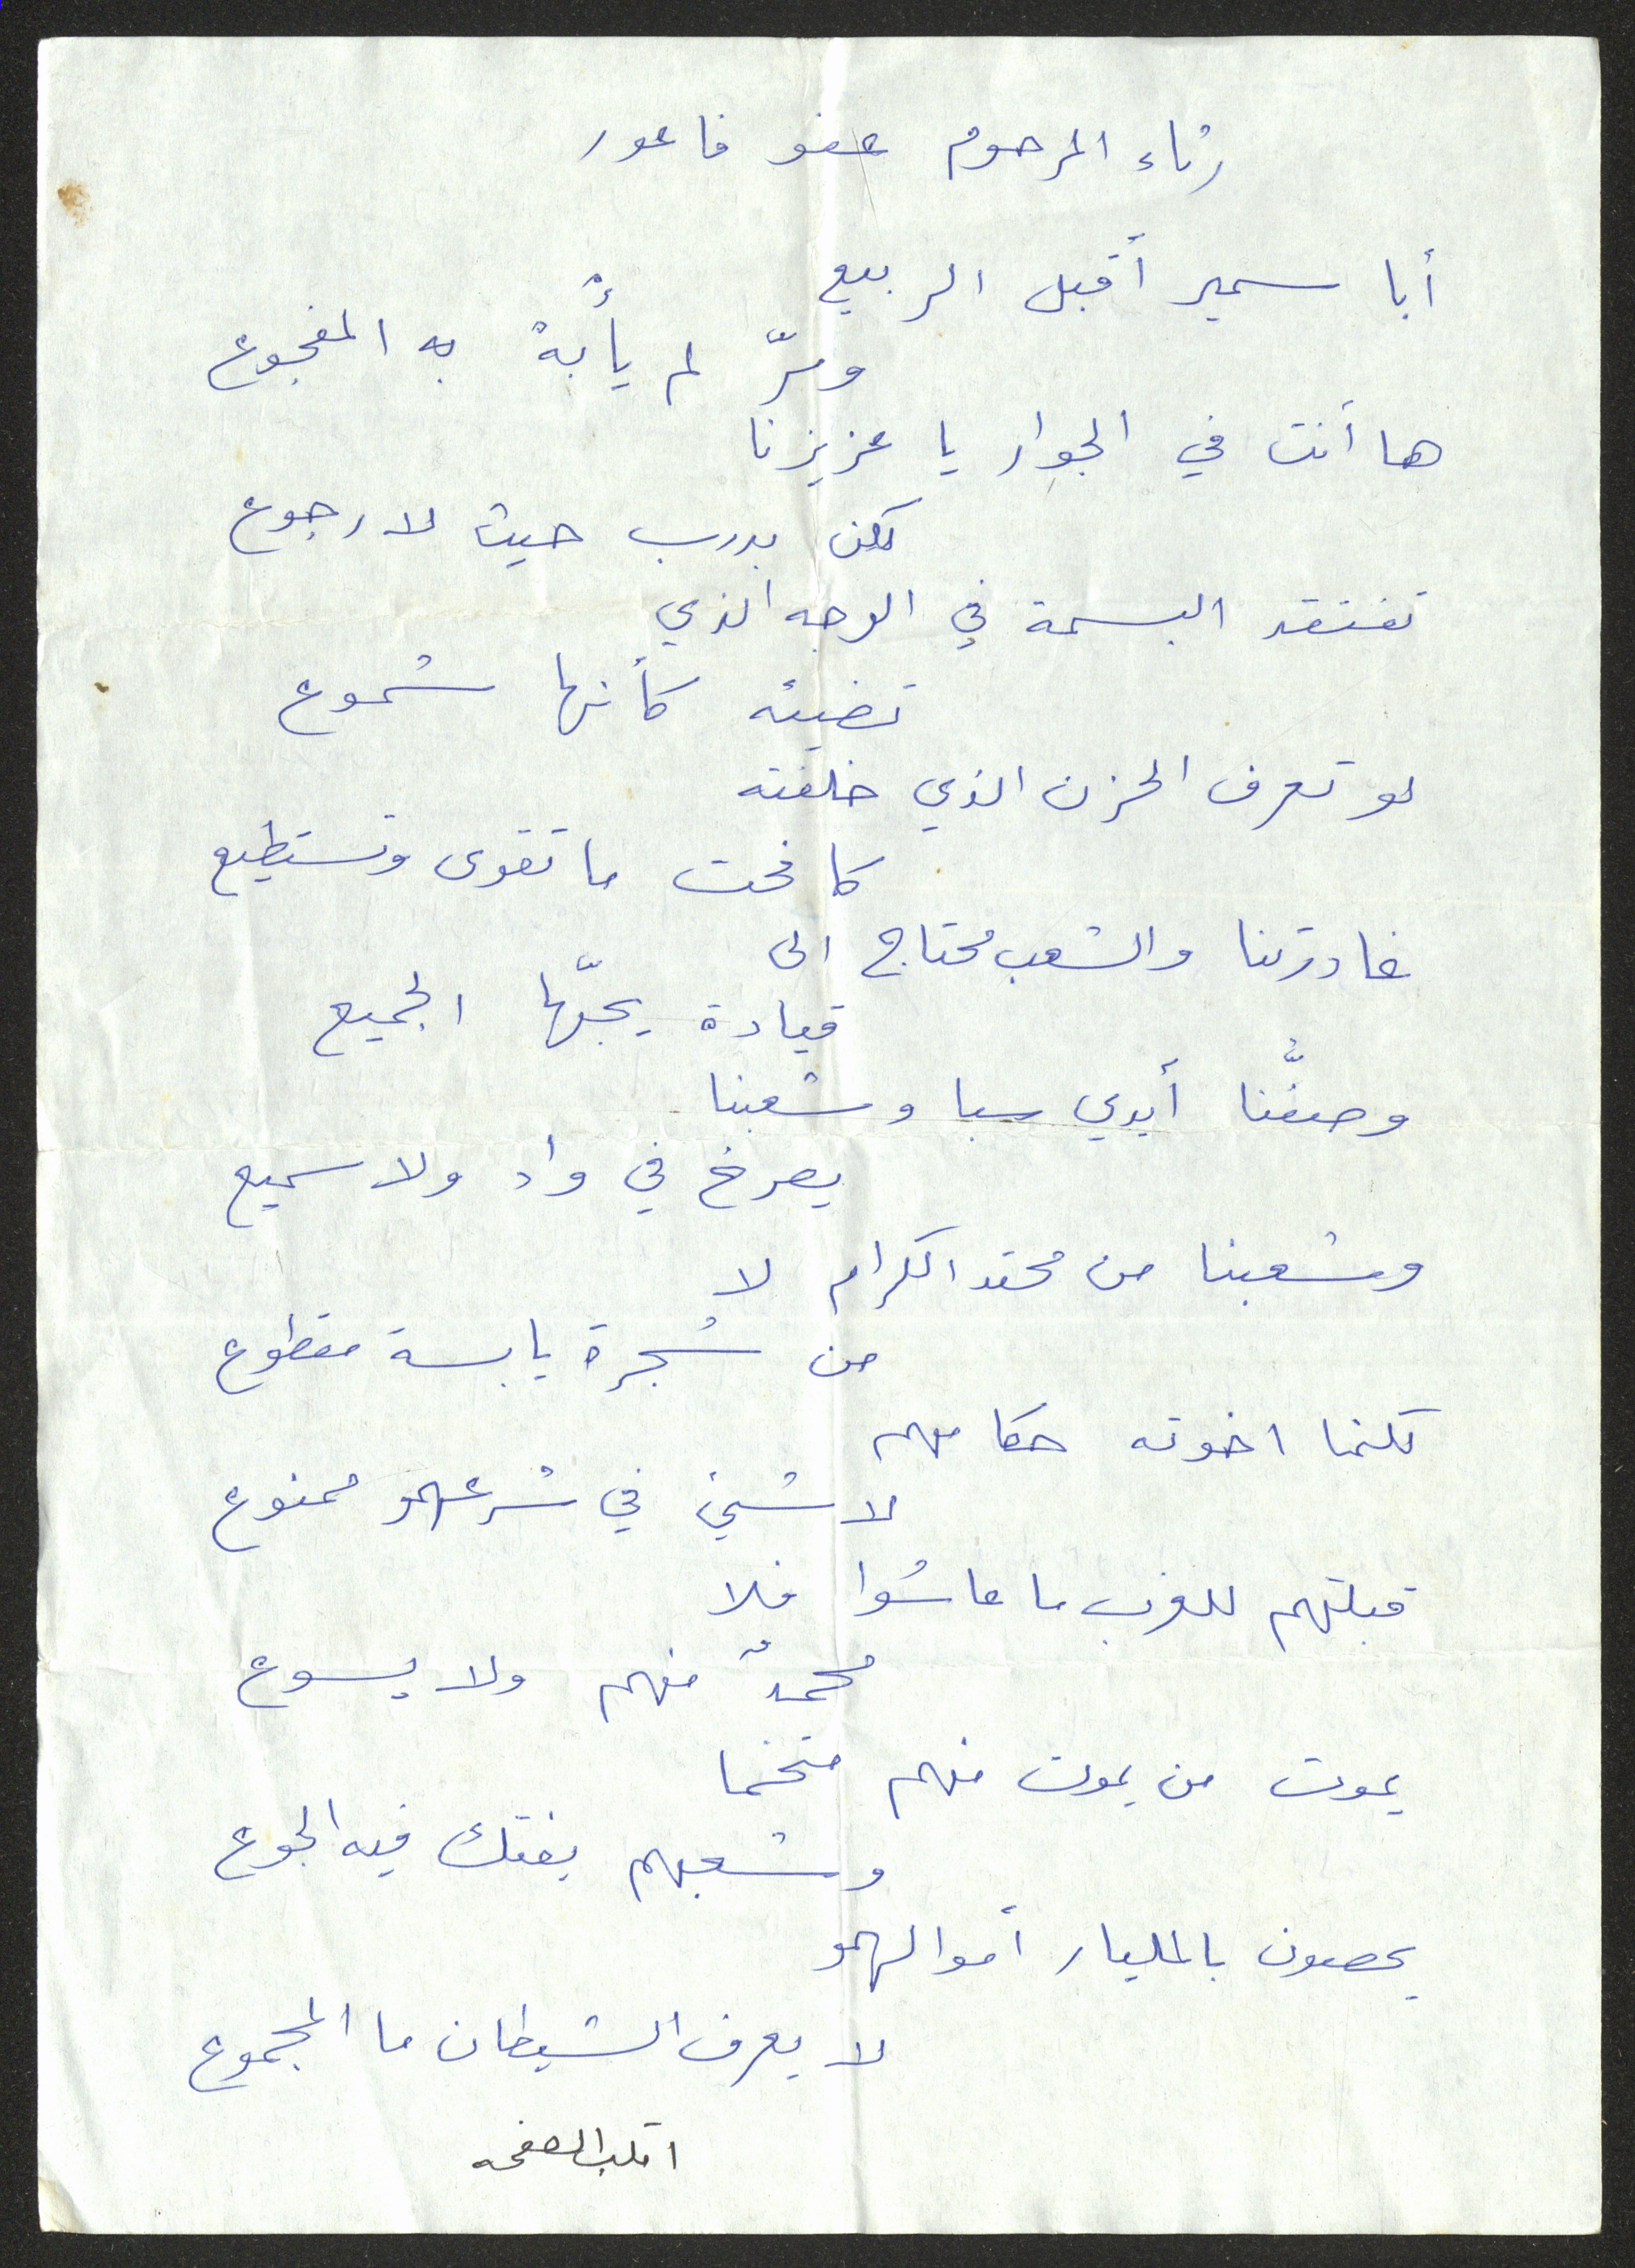 رثاء المرحوم عفو فاعور
أبا سمير أقبل الربيع
ومرّ لم يأبهْ به المفجوع
ها أنت في الجوار يا عزيزنا
لكن بدرب حيث لا رجوع
تفتقد البسمة في الوجه الذي
تضيئه كأنها شموع
لو تعرف الحزن الذي خلفته
كافحت ما تقوى وتستطيع
غادرتنا والشعب محتاج الى
قيادة يحبّها الجميع
وصفُّنا أيدي سبا وشعبنا
يصرخ في واد ولا سميع
وشعبنا من محتد الكرام لا
من شجرة يابسة مقطوع
لكنما اخوته حكامهم
لا شيئ في شرعهمو ممنوع
قبلتهم للغرب ما عاشوا فلا
محمدٌ منهم ولا يسوع
يموت من يموت منهم متخما
وشعبهم يفتك فيه الجوع
يحصون بالمليار أموالهمو
لا يعرف الشيطان ما المجموع
اقلب الصفحه